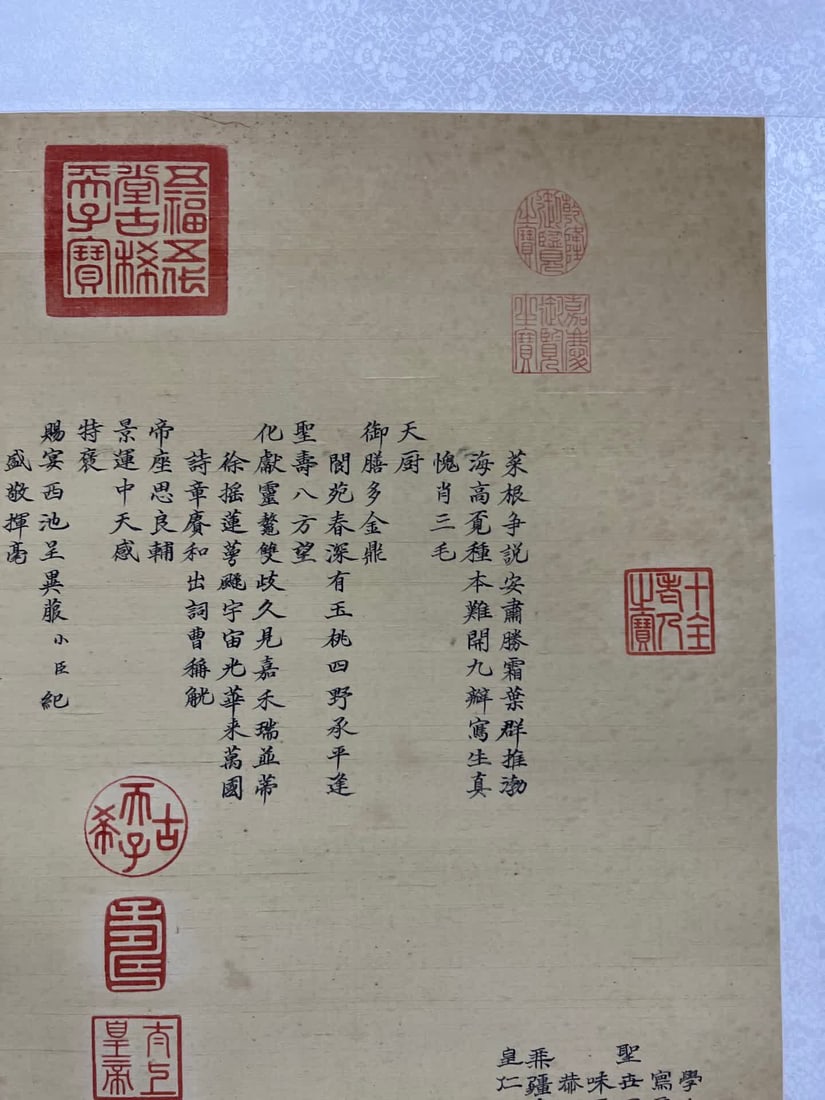 乾隆御覽之寶
嘉慶御覽之寶
十全老人之寶
菜根争説安肅勝霜葉群推渤
海高覔種本難開九辦寫生真
愧肖三毛
天厨
御膳多金鼎
閬苑春深有玉桃四野承平逢
聖壽八方望
化獻靈鼇雙歧久見嘉禾瑞並蒂
徐摇蓮萼飃宇宙光華来萬國
詩章賡和出詞曹稱觥
帝座思良輔
景運中天感
特褒
賜宴西池呈異菔小臣紀
盛敬揮毫
五福五代堂古稀天子寶
古希天子
壽
太上皇帝
學
寫
聖世
味
恭
疆
皇仁